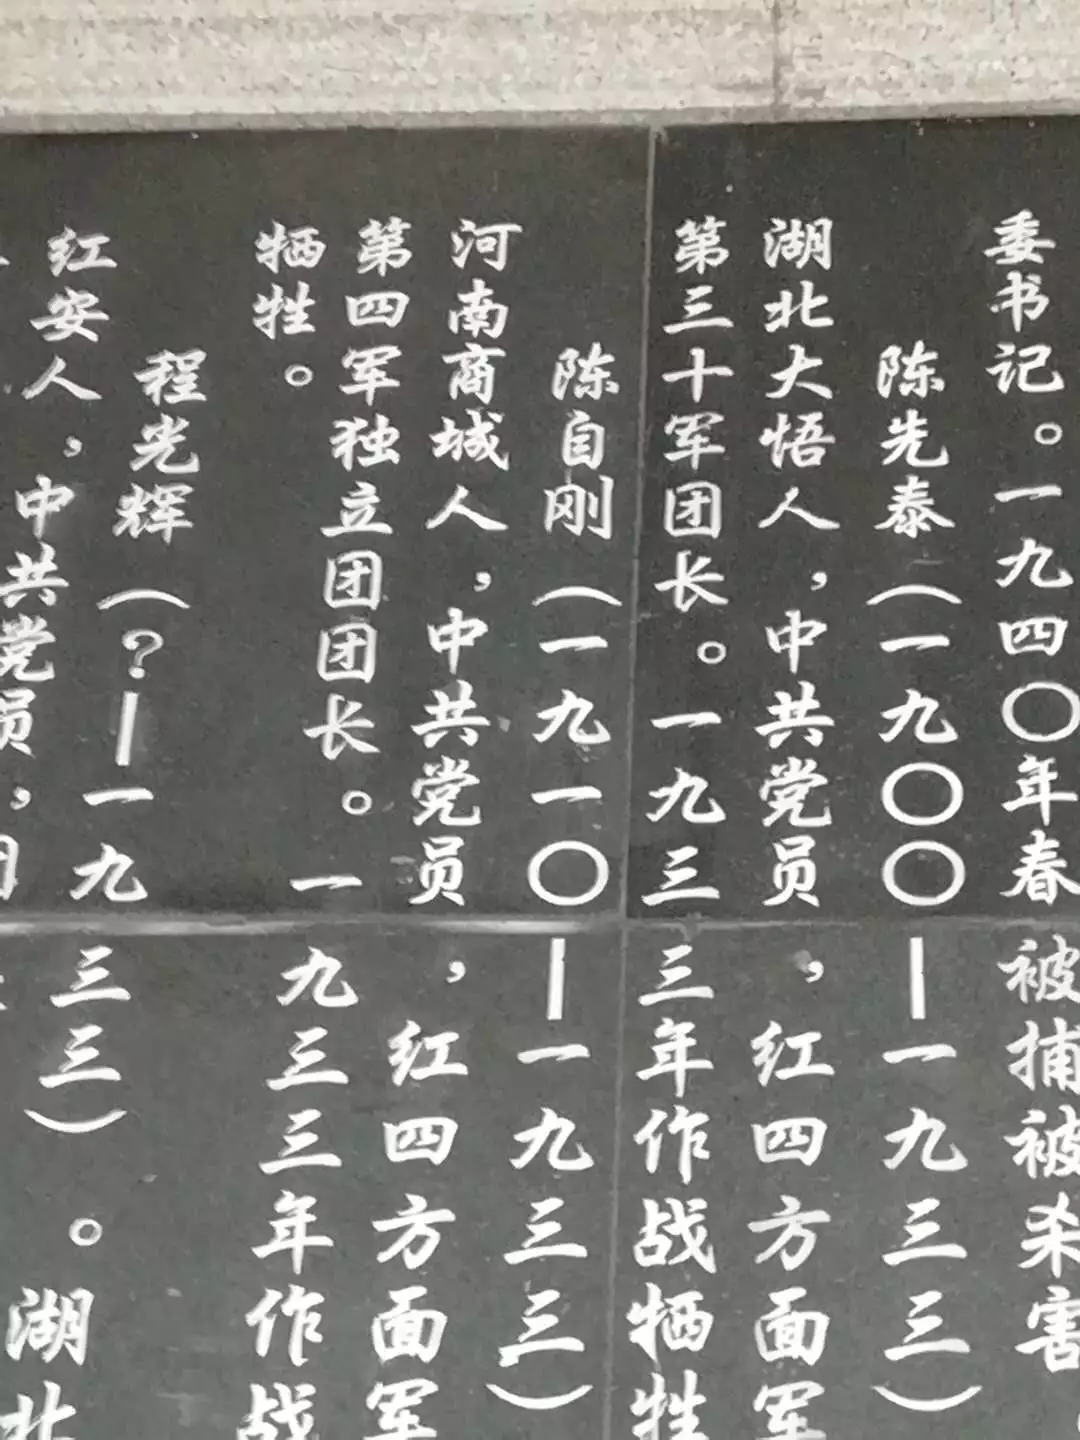 委书记。一九四〇年春被捕被杀害
陈先泰（一九〇〇—一九三三）
湖北大悟人，中共党员，红四方面军
第三十军团长。一九三三年作战牺牲
陈自刚（一九一〇—一九三三）
河南商城人，中共党员，红四方面军
第四军独立团团长。一九三三年作战
牺牲。
程光辉（？—一九三三）。湖北
红安人，中共党员，